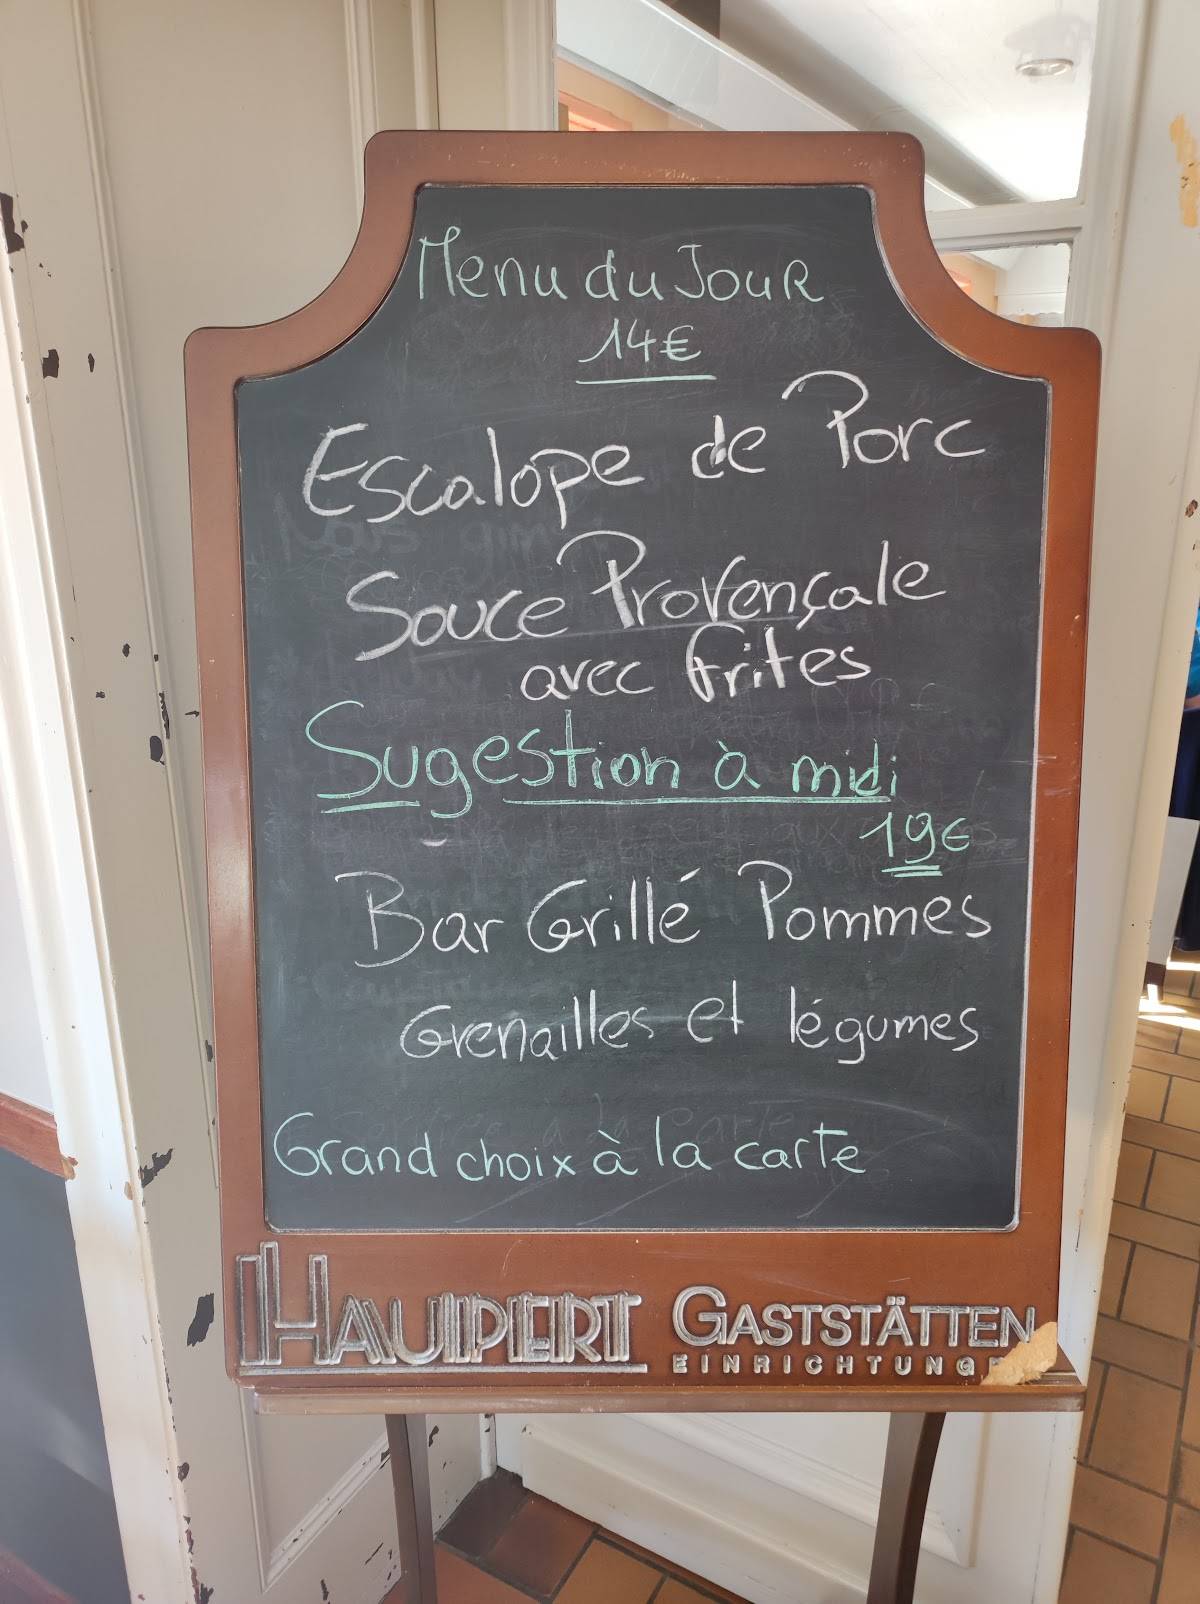 Menu du Jour
14€
Escalope de Porc
Souce Provençale
avec frites
Sugestion à midi
19€
Bar Grillé Pommes
Grenailles et légumes
Grand choix à la carte
HAUPERT GASTSTÄTTEN
EINRICHTUNG